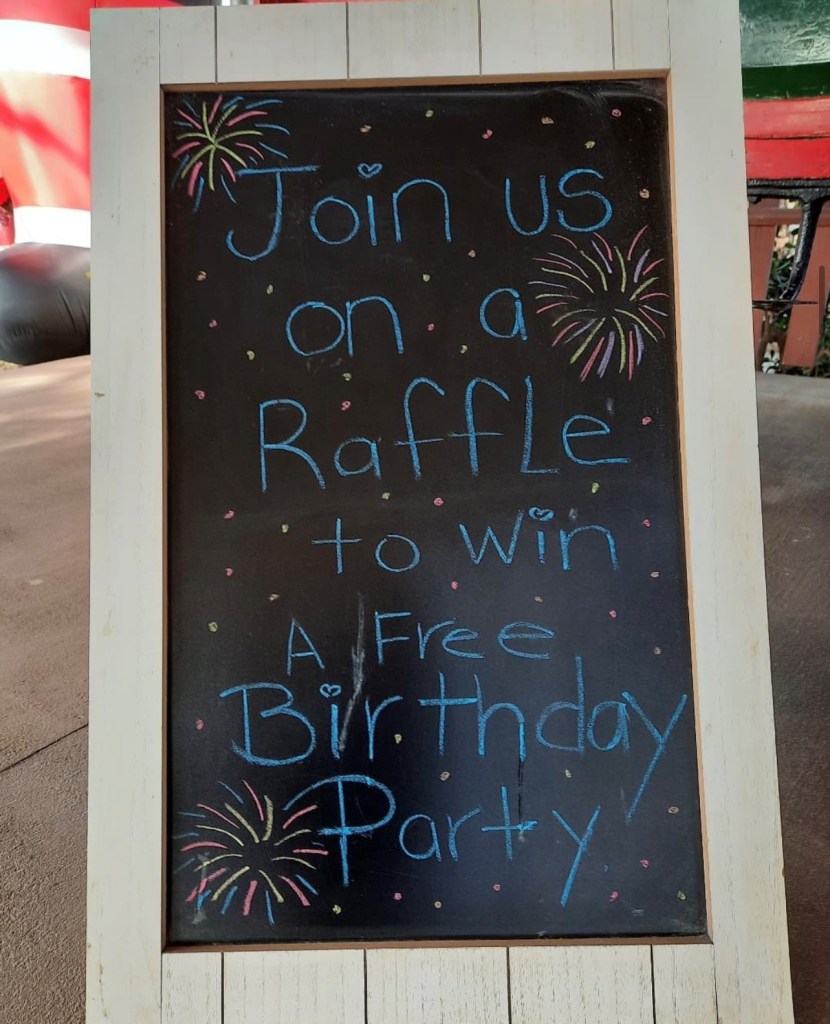 Join us
on a
Raffle
to win
A Free
Birthday
Party.